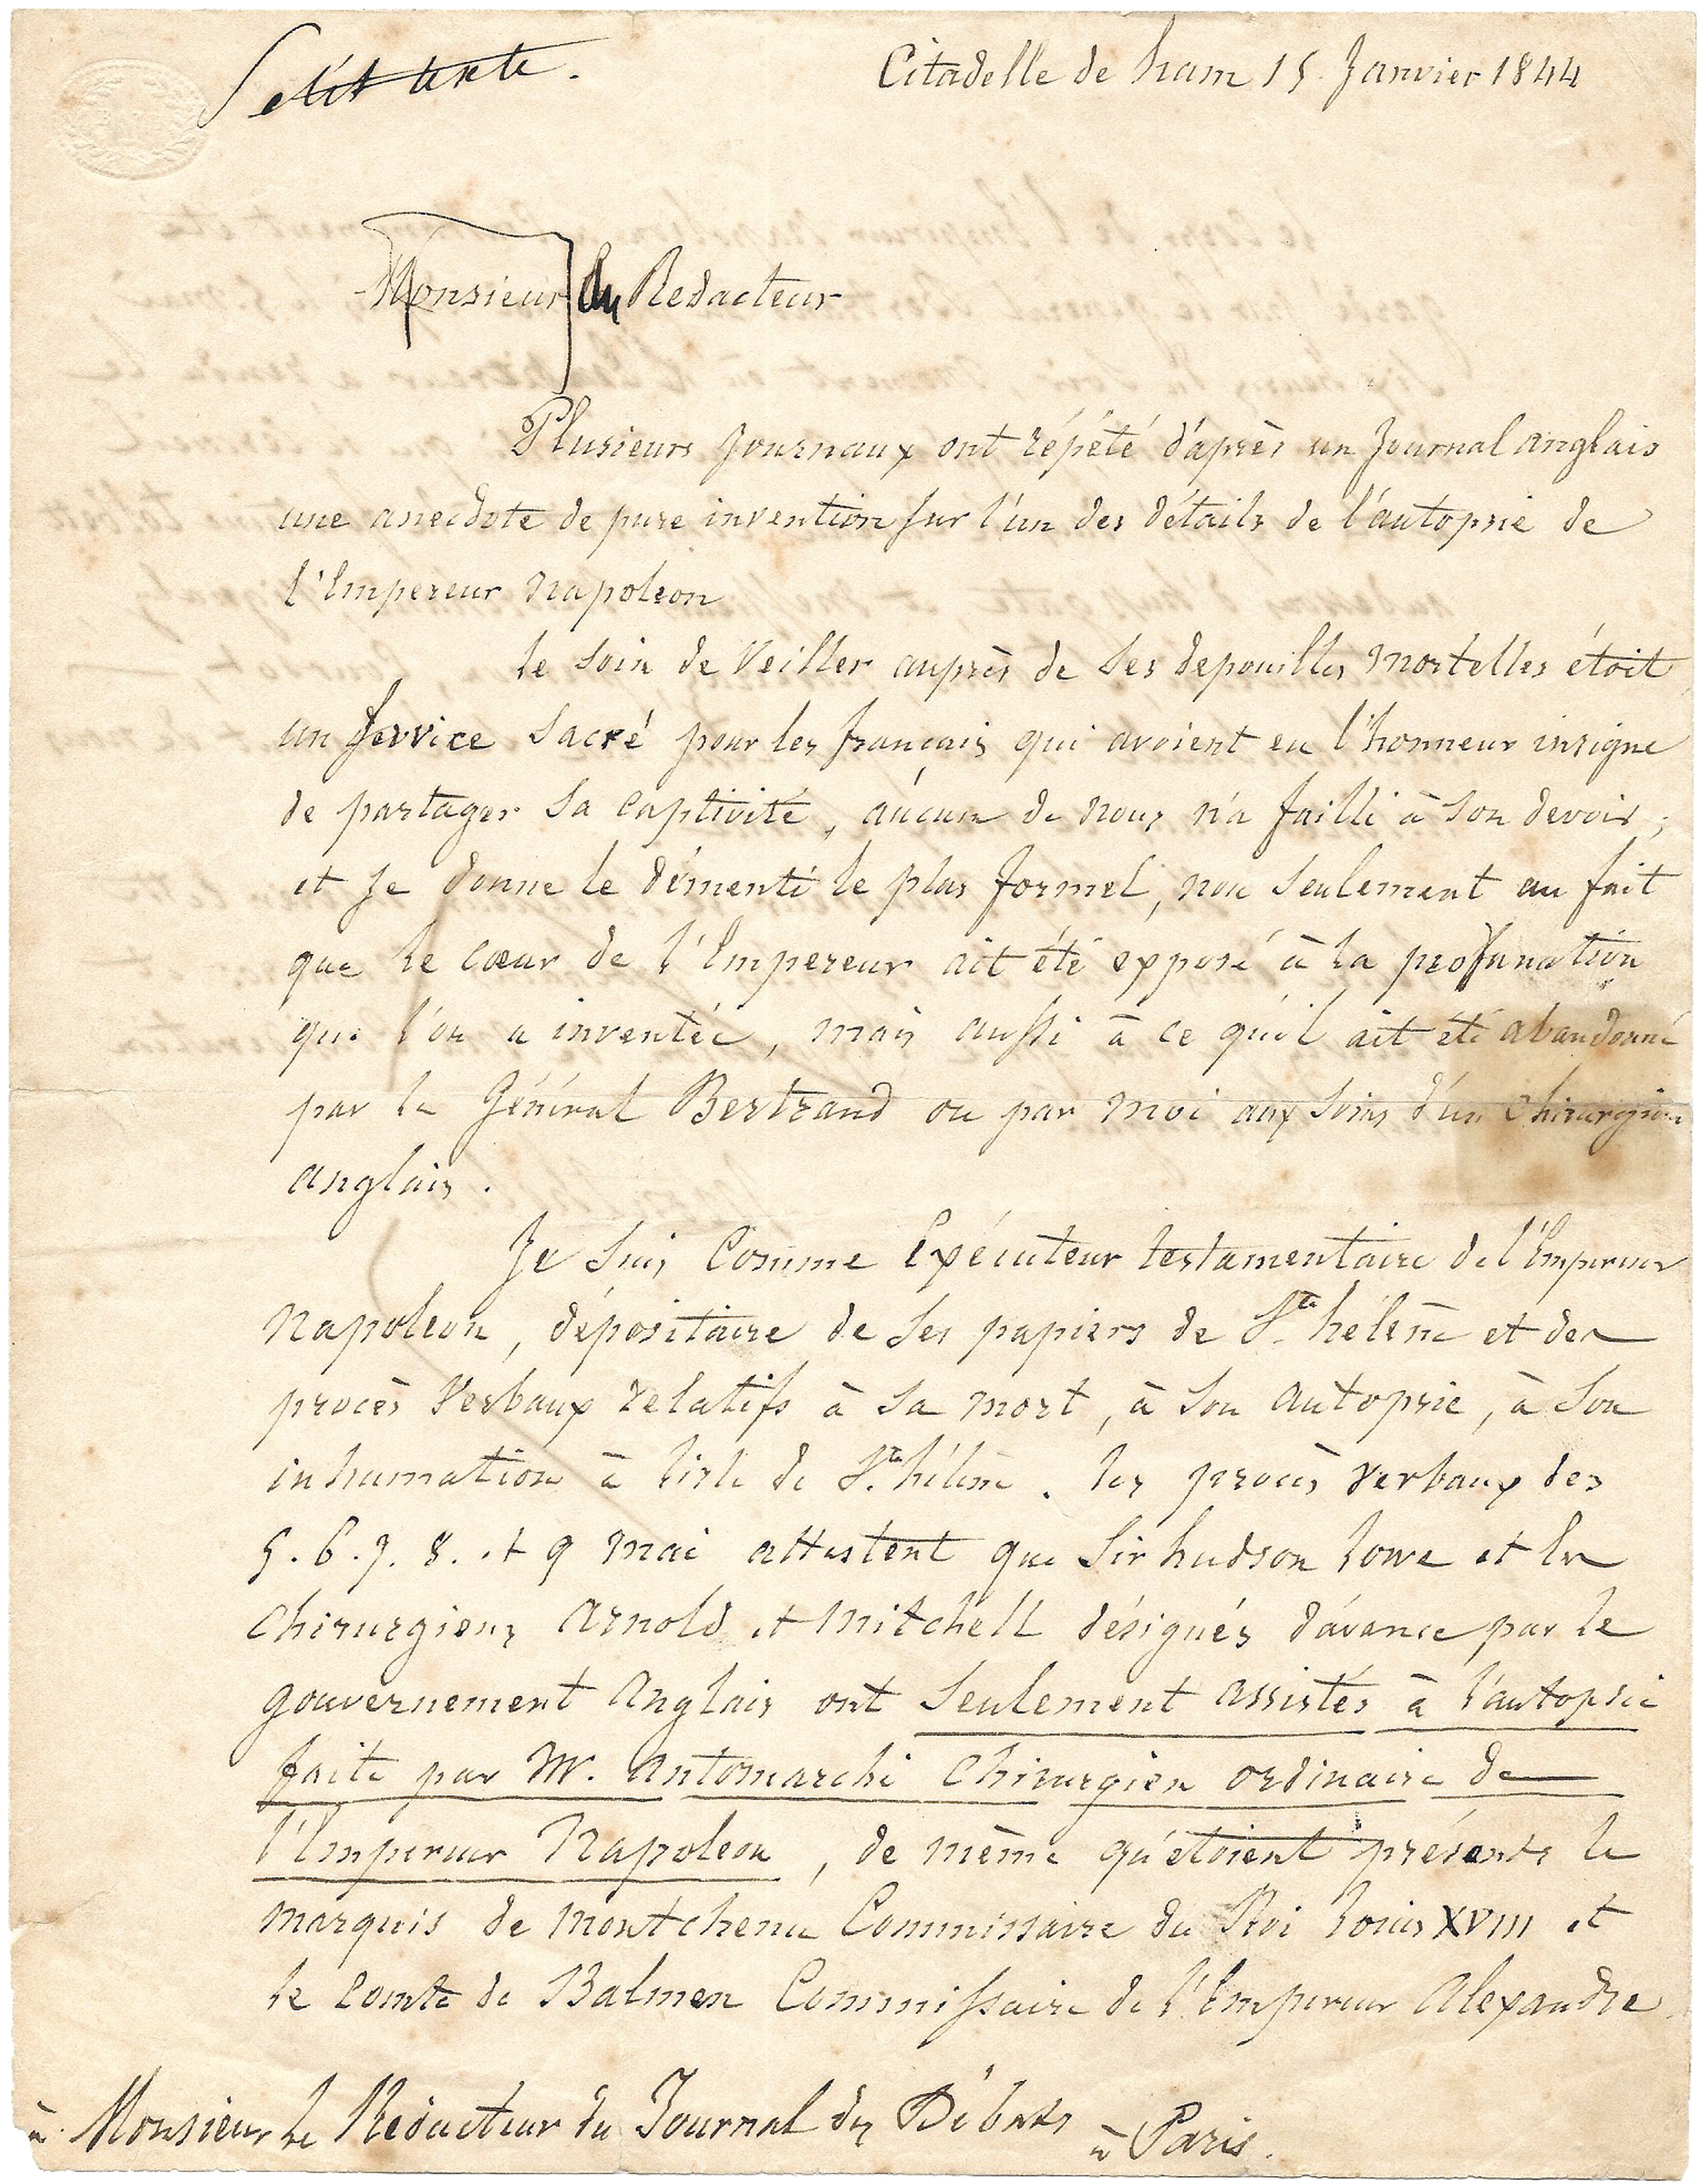 Petit texte.
Citadelle de ham 15 Janvier 1844
Monsieur du Redacteur
Plusieurs Journaux ont répété d'après un Journal anglais
une anecdote de pure invention sur l'un des détails de l'autopsie de
l'Empereur Napoleon
le soin de Veiller auprès de ses depouilles mortelles étoit
un service sacré pour les français qui avoient eu l'honneur insigne
de partager sa captivité, aucun de nous n'a failli à son devoir ;
et Je donne le démenti le plus formel, non seulement au fait
que le cœur de l'Empereur ait été exposé à la profanation
que l'on a inventée, mais aussi à ce qu'il ait été abandonné
par le Général Bertrand ou par moi aux soins d'un chirurgien
anglais.
Je suis Comme Exécuteur testamentaire de l'Empereur
Napoleon, dépositaire de ses papiers de Ste héléne et des
procès Verbaux relatifs à sa mort, à son autopsie, à son
inhumation à l'isle de Ste hélène. les procès Verbaux des
5. 6. 7. 8. et 9 mai attestent que Sir hudson Lowe et les
Chirurgiens Arnold et Mitchell désignés d'avance par le
gouvernement Anglais ont seulement assistés à l'autopsie
faite par Mr. Antomarchi Chirurgien ordinaire de
l'Empereur Napoleon, de même qu'étoient présents le
marquis de montchenu Commissaire du Roi Louis XVIII et
le Comte de Balmen Commissaire de l'Empereur Alexandre
à Monsieur le Rédacteur du Journal des Débats à Paris.